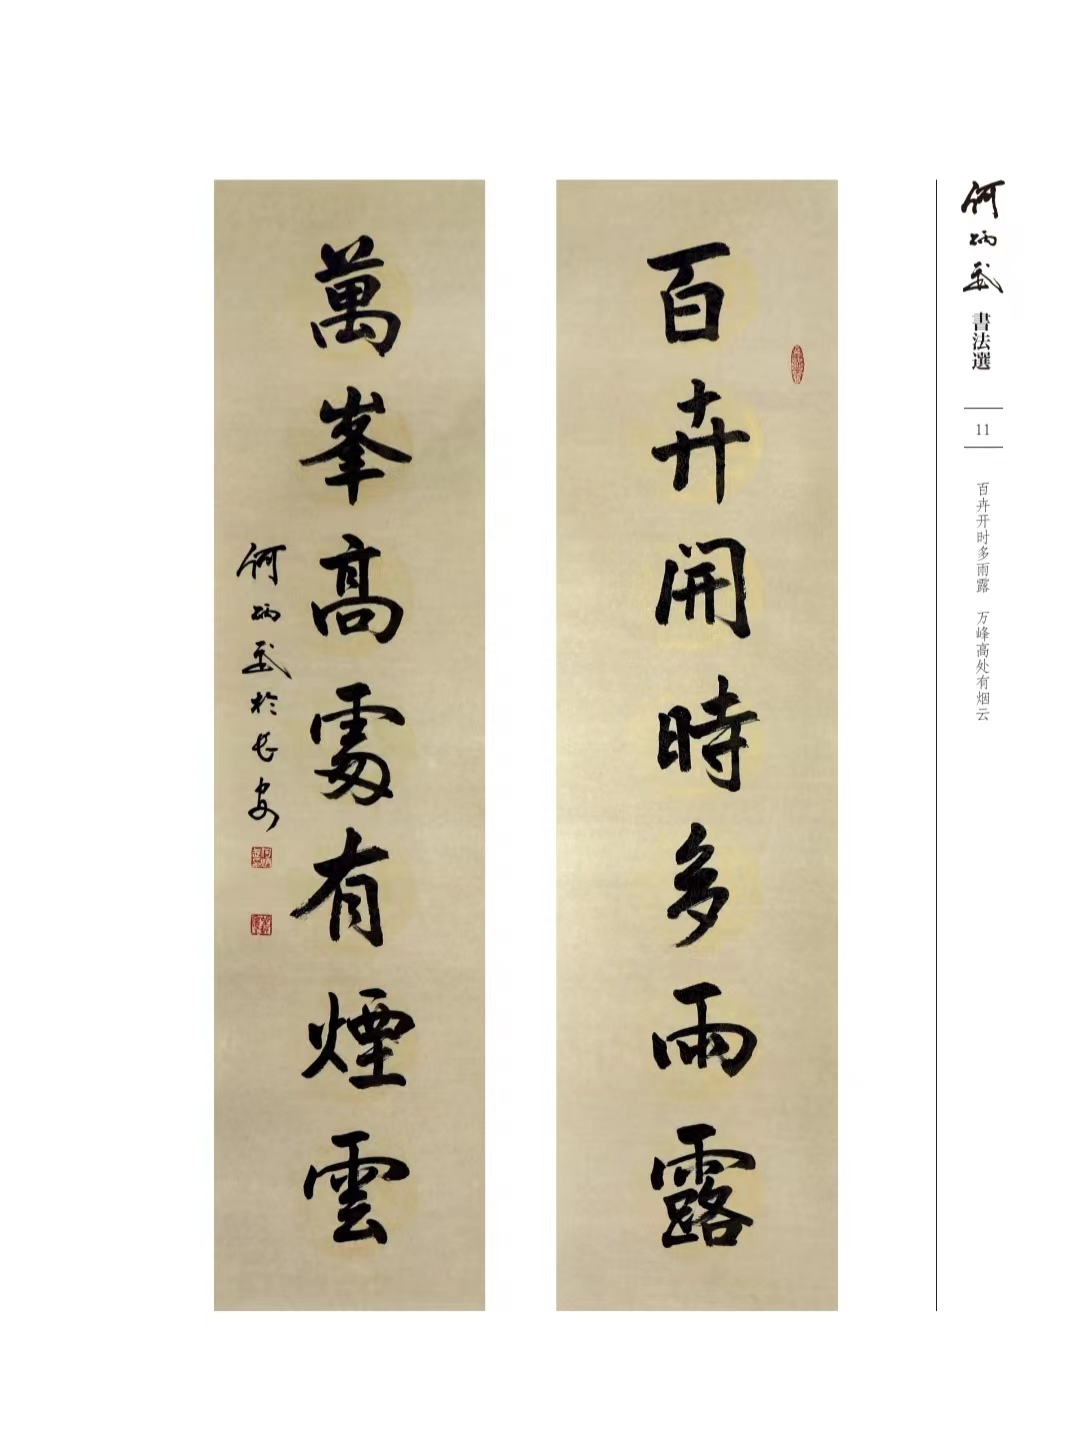 百卉開時多雨露
萬峯高處有煙雲
何炳武於長安
何炳武
書法選
11
百卉开时多雨露 万峰高处有烟云